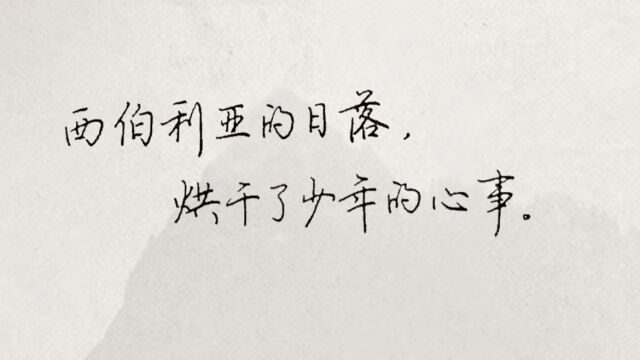 西伯利亚的日落，
烘干了少年的心事。